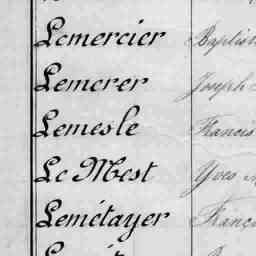 Lemercier Baptist
Lemerer Joseph
Lemesle Francis
Le Mest Yves
Lemétayer Franç